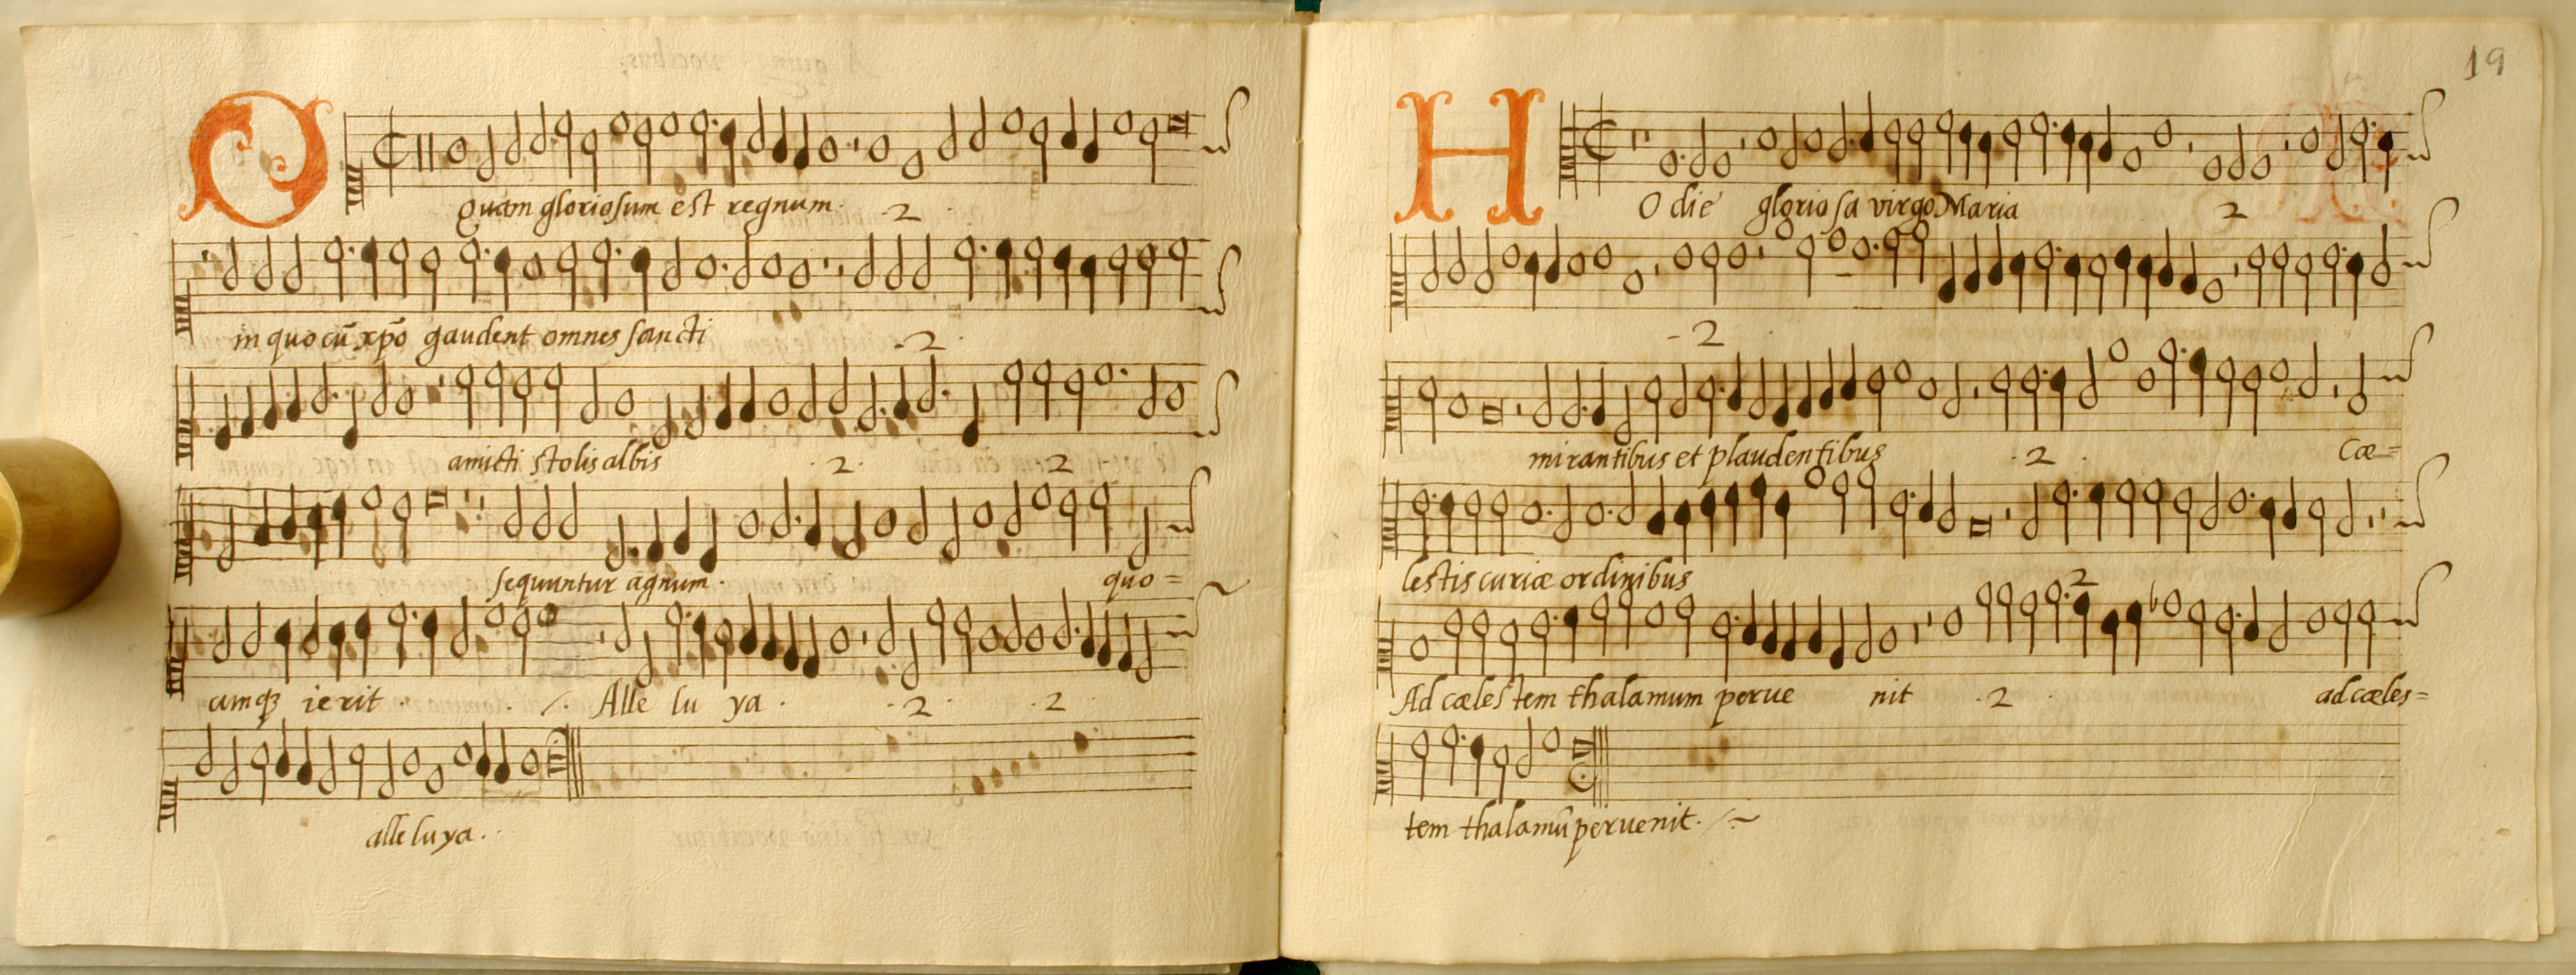 O quam gloriosum est regnum. 2.
in quo cũ xpõ gaudent omnes sancti 2.
amicti stolis albis .2. 2
sequuntur agnum. quo=
cumqȝ ierit. Alle lu ya. .2. .2.
alleluya.
19
HOdie gloriosa virgo Maria 2
2
mirantibus et plaudentibus .2. Cæ=
lestis curiæ ordinibus
2
Ad cælestem thalamum perue nit .2. ad cæles=
tem thalamũ peruenit.